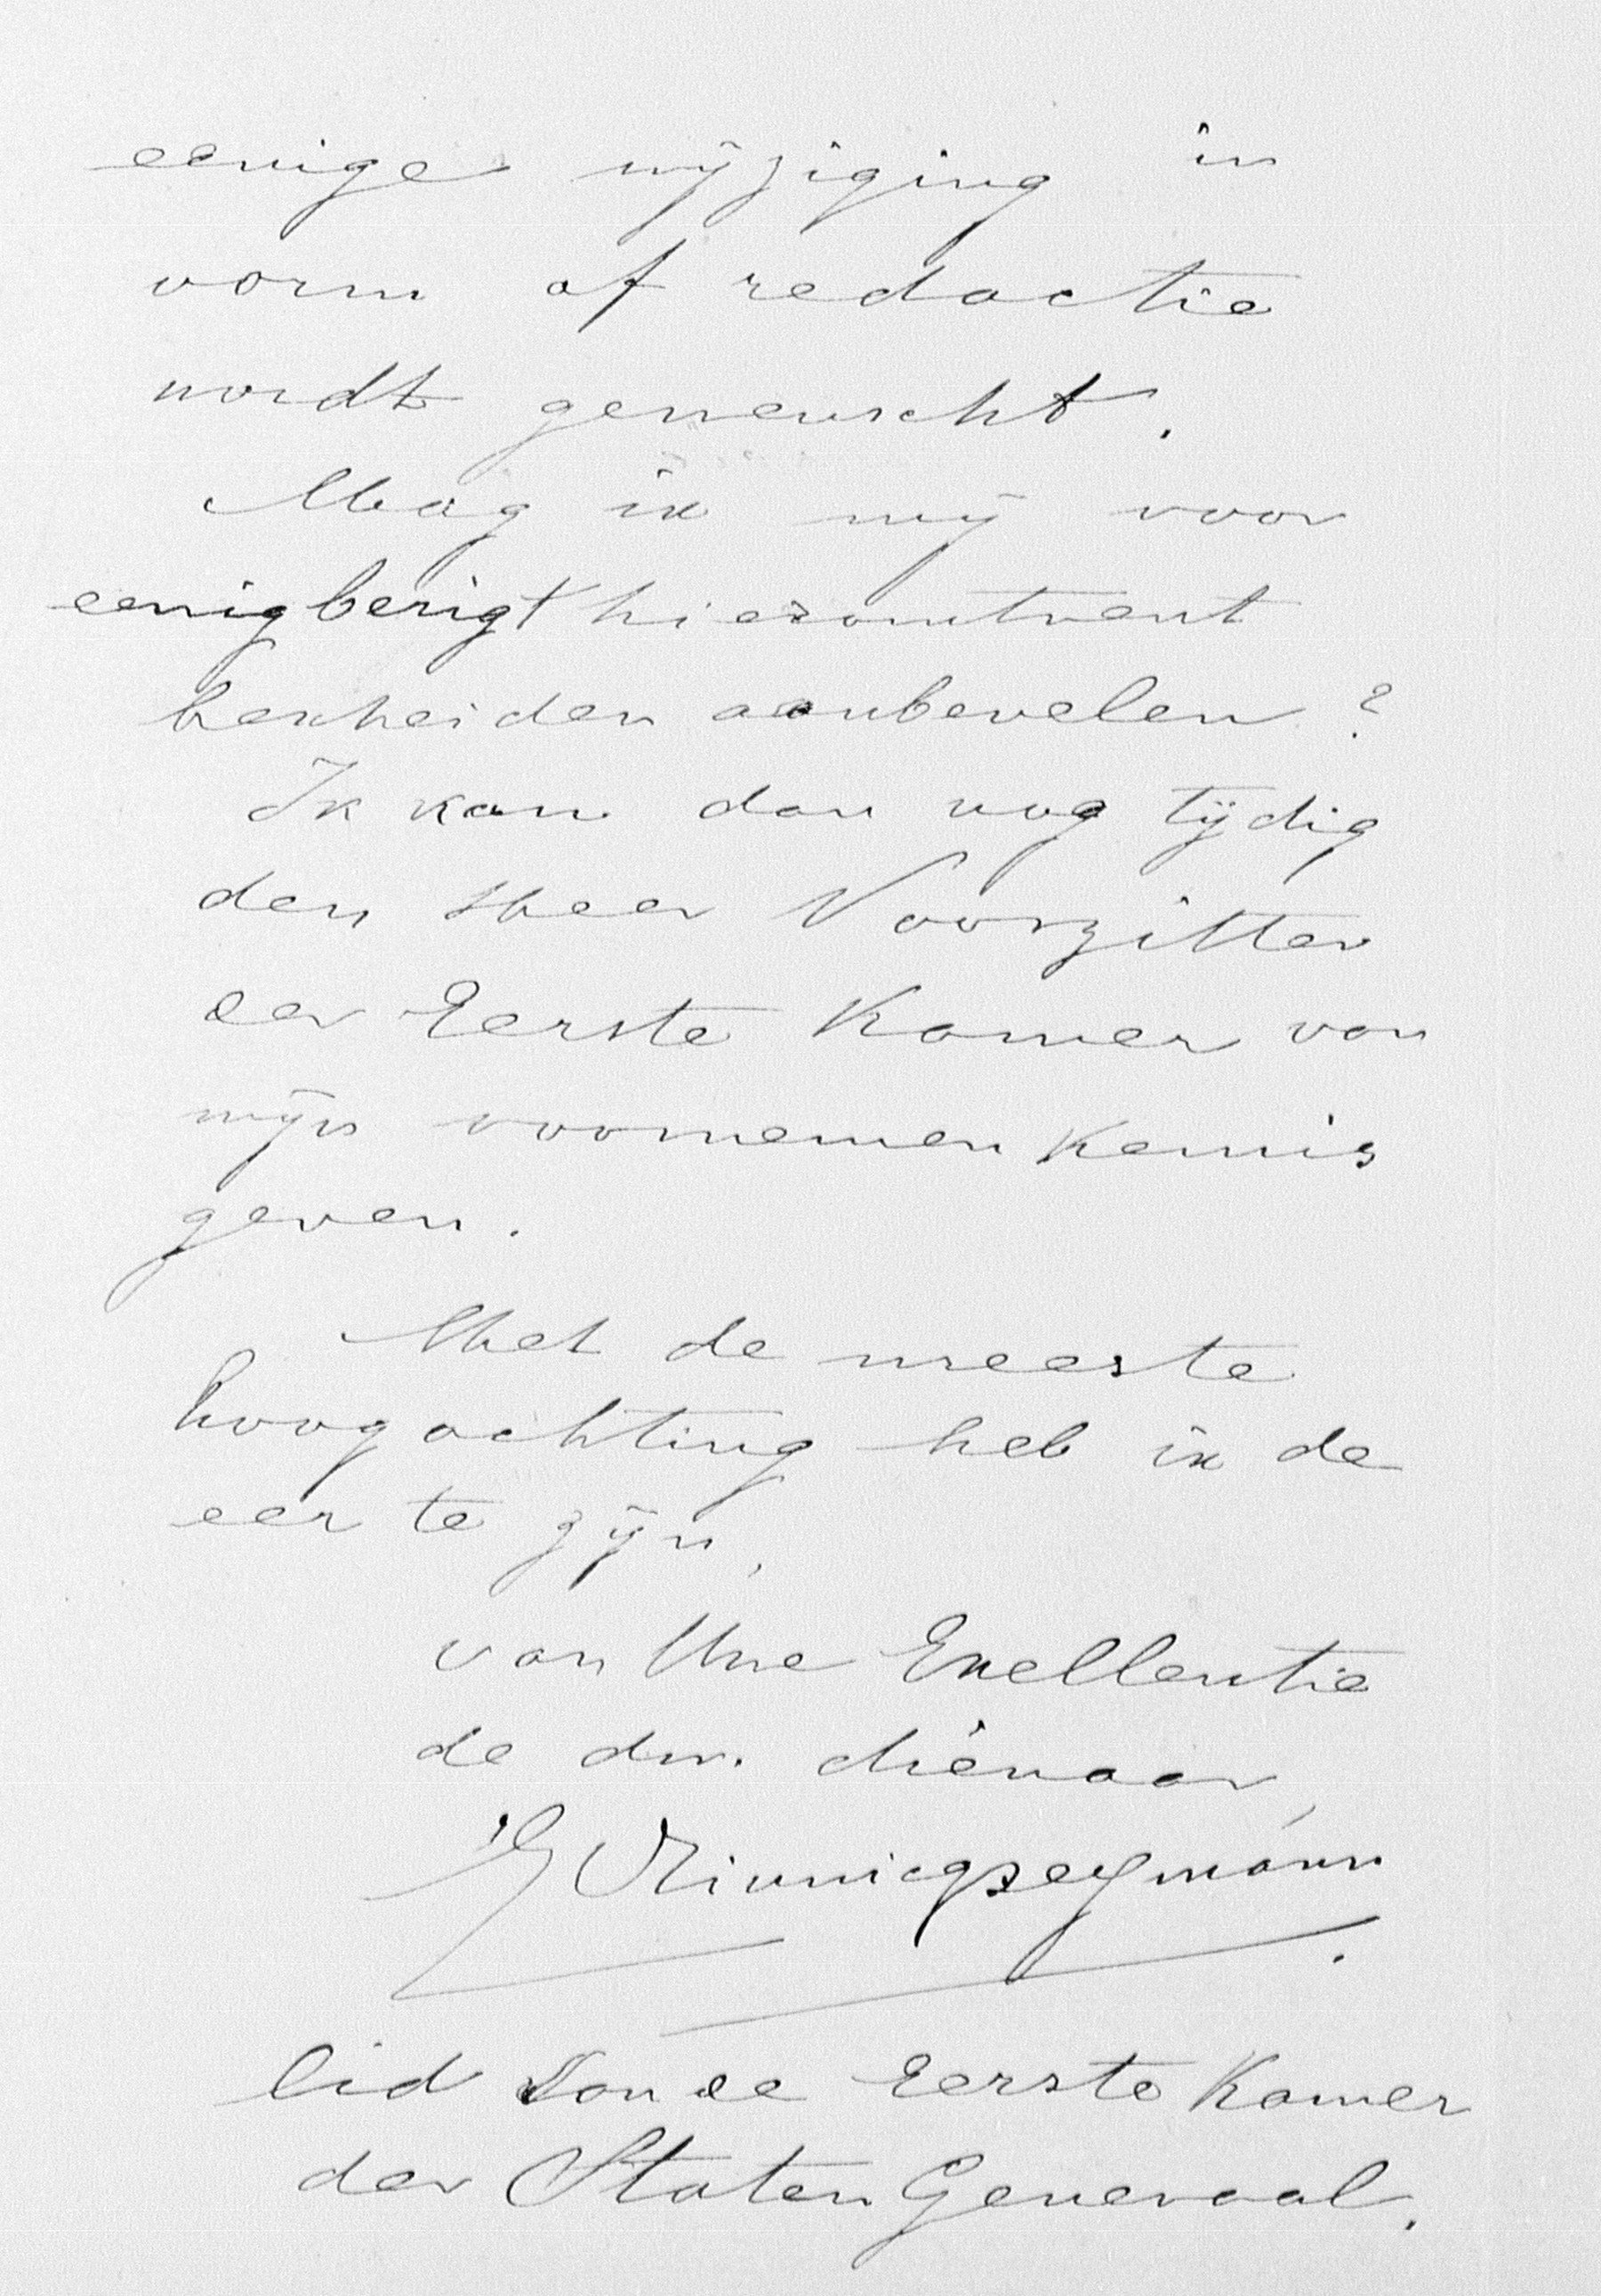 eenige wijziging in
vorm of redactie
wordt gewenscht.
Mag ik mij voor
eenig berigt hieromtrent
bescheiden aanbevelen?
Ik kan dan nog tijdig
den Heer Voorzitter
der Eerste Kamer van
mijn voornemen kennis
geven.
Met de meeste
hoogachting heb ik de
eer te zijn,
van Uwe Excellentie
de dw. dienaar,
lid van de Eerste Kamer
der Staten Generaal.